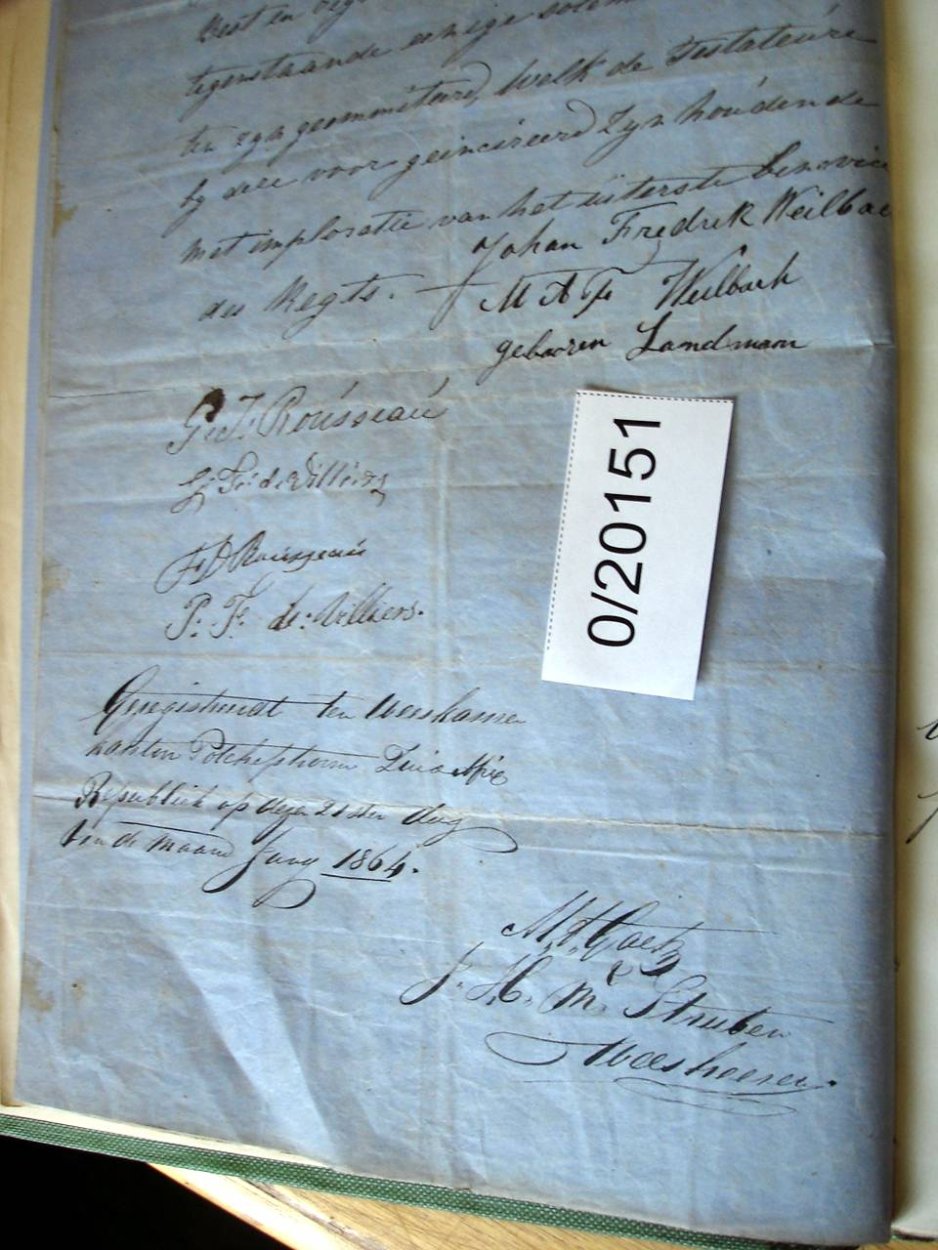 Best en
tegenstaande eenige
ten zyn geommiteerd, Welk de Testateure
by dese voor geinsireerd zyn houdende
Met imploratie van het uiterste benovice
des Regts.
Johan Fredrik Weilbac
M A F Weilbach
gebooren Landmaan
G: J: Rousseau
G: F: de Villiers
F D Rousseau
P: F: de: Villiers.
Geregistreerd ten Weeskamer
kantoor Potchefstroom Zuid Afric
Republiek op dezen 21ster dag
van de maand Juny 1864.
M. A. Goetz
J. H. M. Struben
Weesheeren.
0/20151